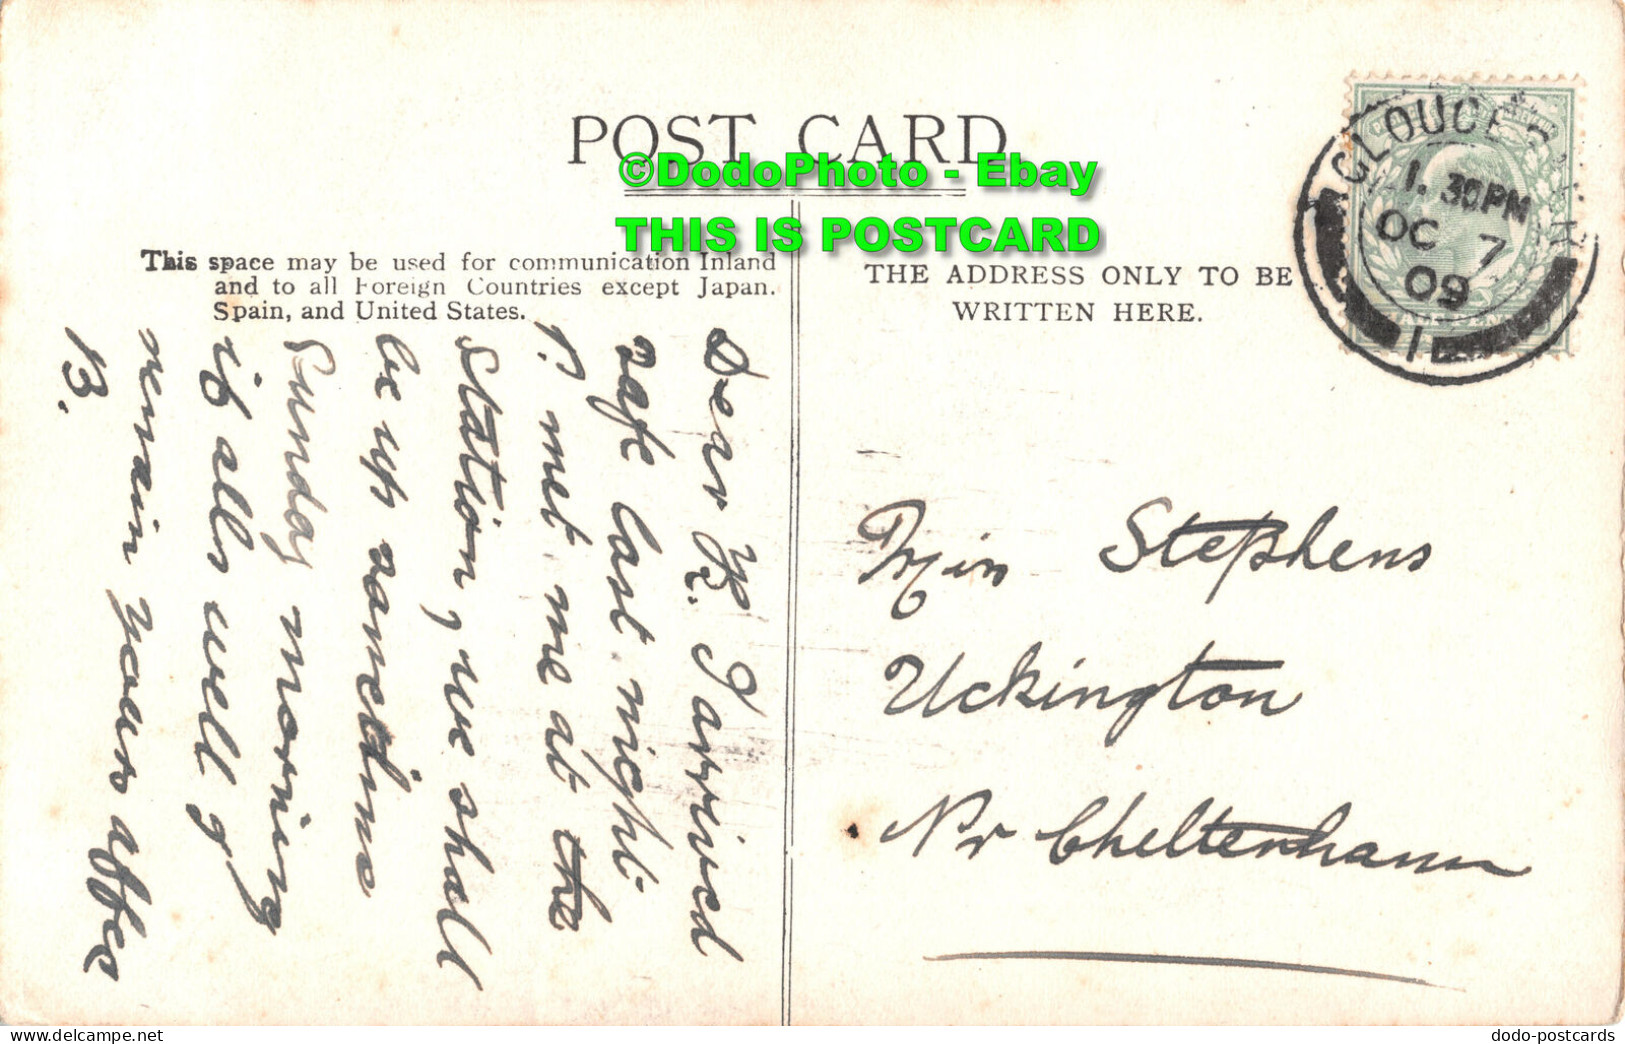 POST CARD
©DodoPhoto - Ebay
THIS IS POSTCARD
This space may be used for communication Inland
and to all Foreign Countries except Japan.
Spain, and United States.
THE ADDRESS ONLY TO BE
WRITTEN HERE.
GLOUCESTER
1. 30PM
OC 7
09
1
Dear K. I arrived
safe last night.
P. met me at the
Station, we shall
be up sometime
Sunday morning
if all's well
remain yours affec
B.
Miss Stephens
Uckington
Nr Cheltenham
dodo-postcards